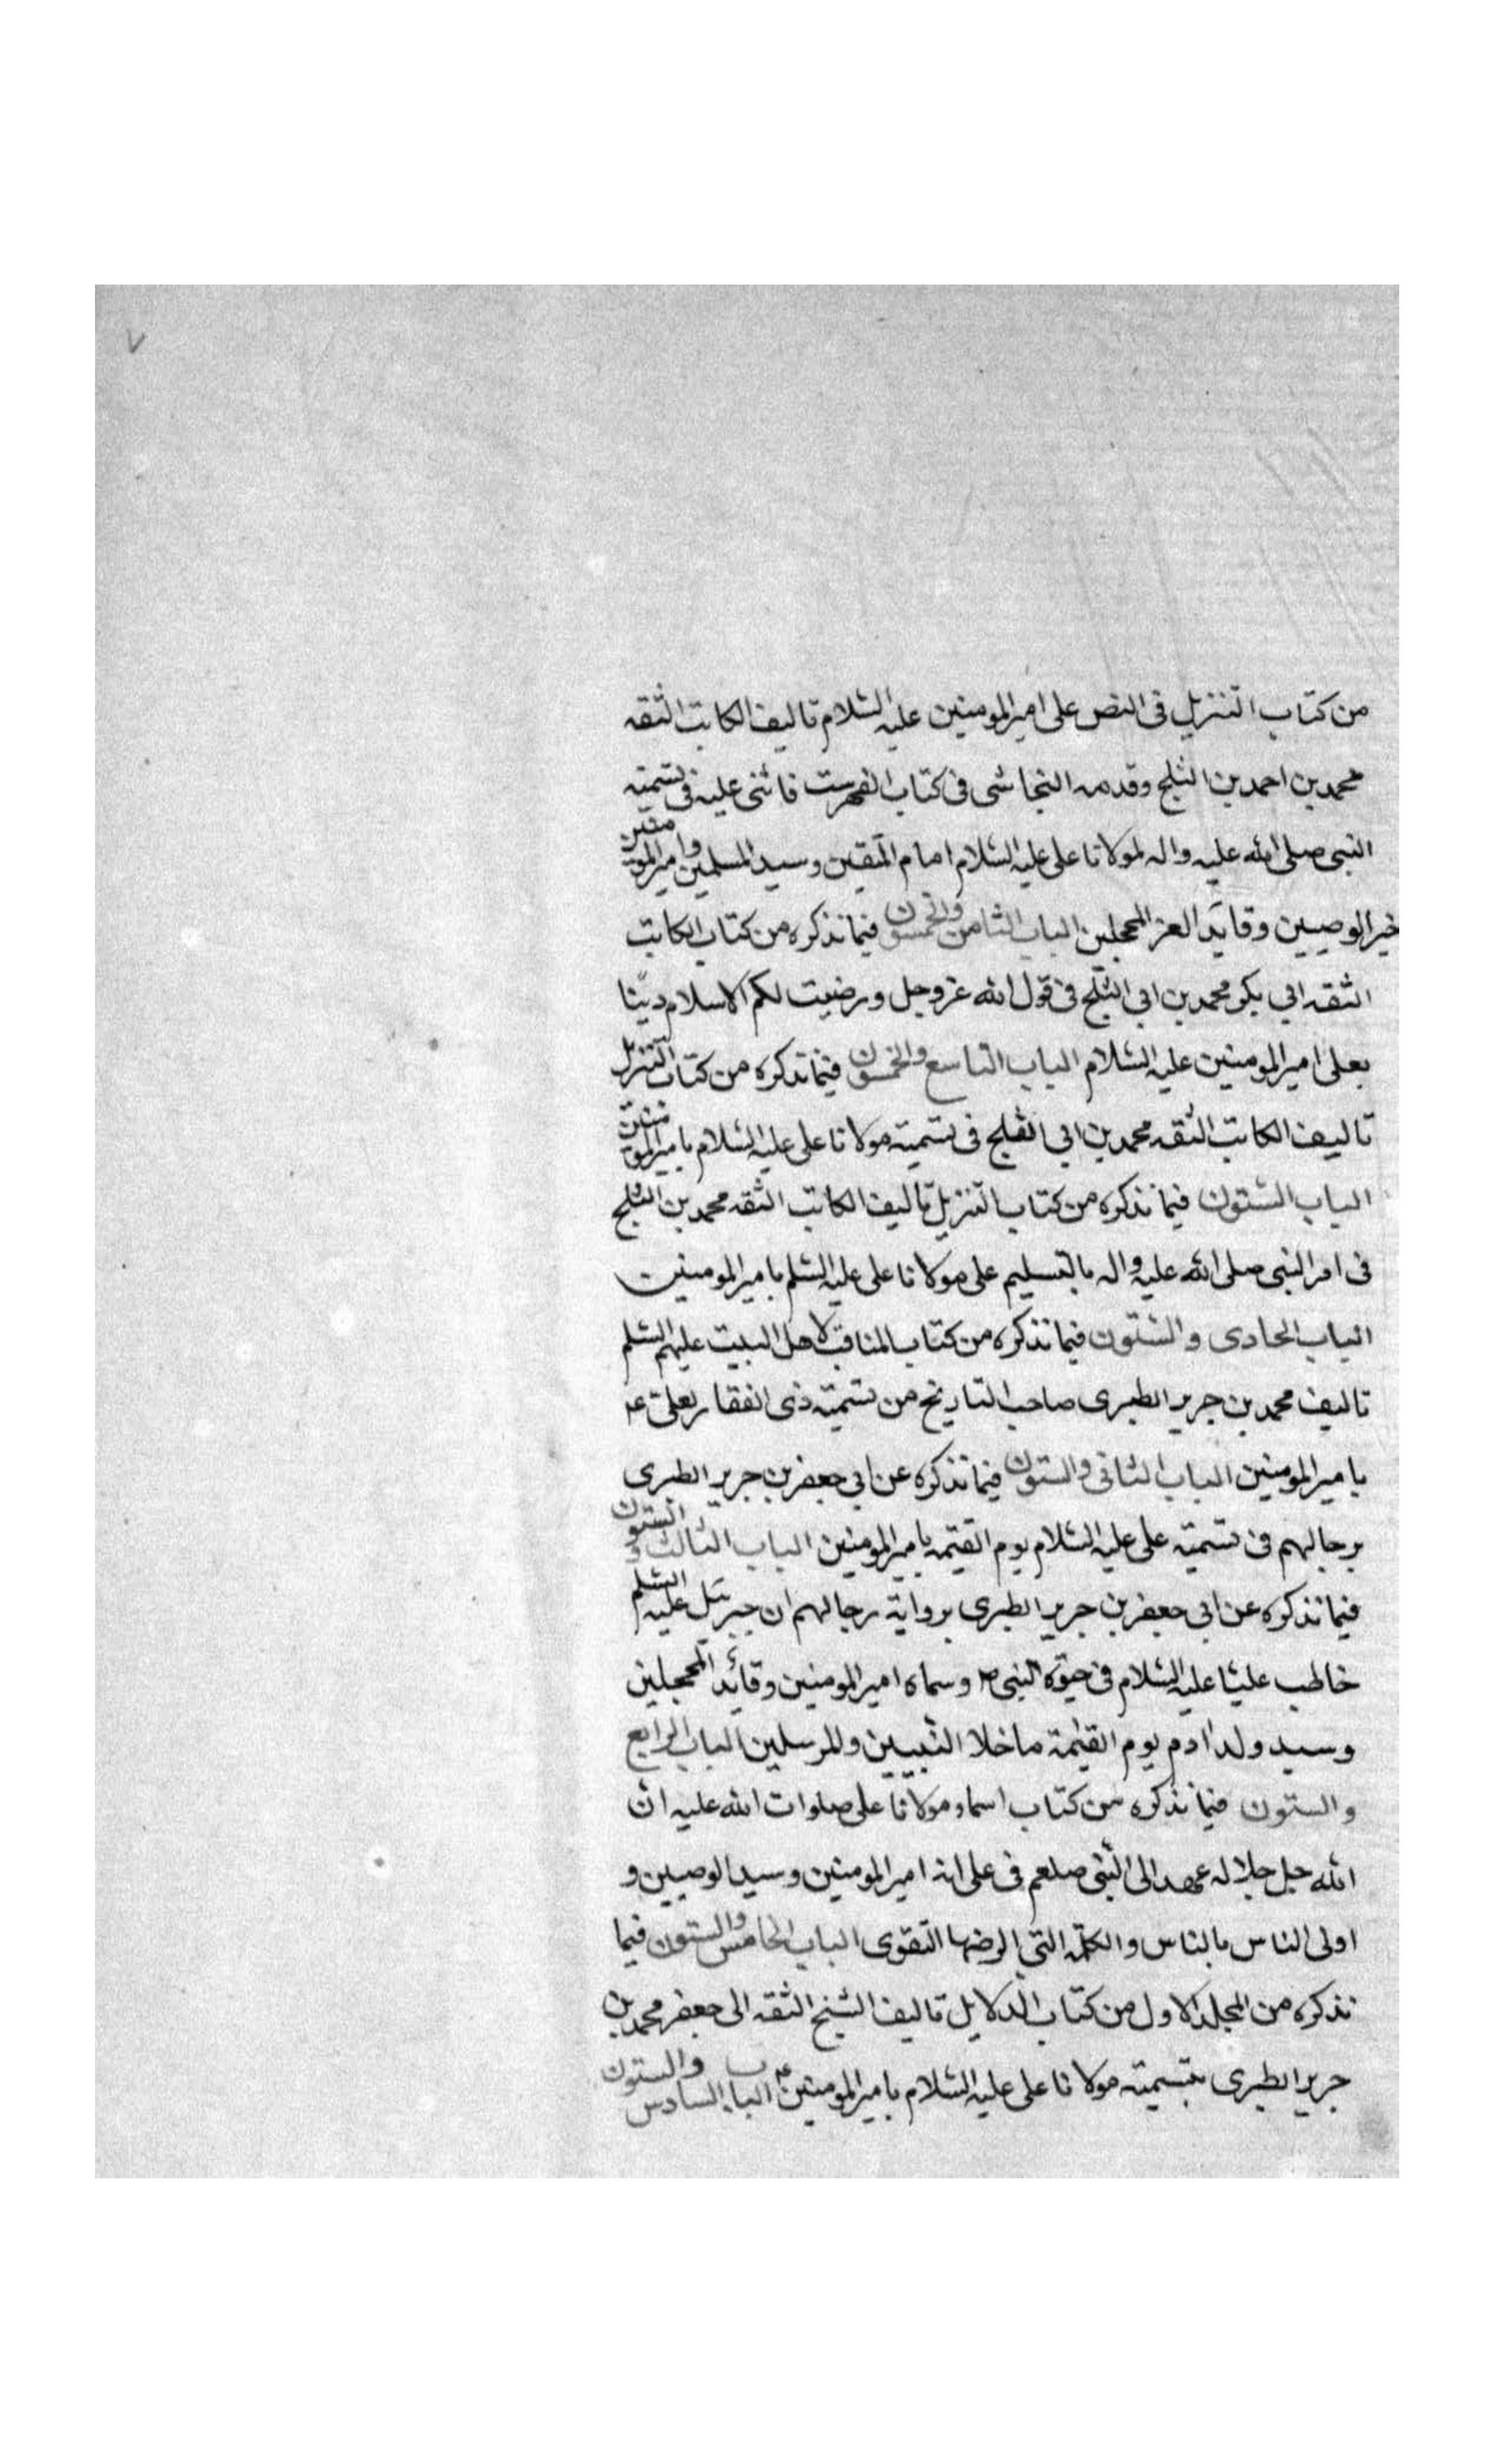 ٧
من كتاب التنزيل فى النص على امير المومنين عليه السلام تاليف الكاتب الثقه
محمد بن احمد بن الثلج وقدمه النجاشى فى كتاب الفهرست فاثنى عليه فى تسمية
النبى صلى الله عليه واله لمولانا على عليه السلام امام المتقين وسيد المسلمين وامير المومنين
خير الوصيين وقايد العز المحجلين الباب الثامن والخمسون فيما نذكره من كتاب الكاتب
الثقه ابي بكر محمد بن ابي الثلج فى قول الله عز وجل ورضيت لكم الاسلام دينا
بعلى امير المومنين عليه السلام الباب التاسع والخمسون فيما نذكره من كتاب التنزيل
تاليف الكاتب الثقه محمد بن ابي الثلج فى تسمية مولانا على عليه السلام بامير المومنين
الباب الستون فيما نذكره من كتاب التنزيل تاليف الكاتب الثقه محمد بن الثلج
فى امر النبى صلى الله عليه واله بالتسليم على مولانا على عليه السلم بامير المومنين
الباب الحادى والستون فيما نذكره من كتاب المناقب لاهل البيت عليهم السلم
تاليف محمد بن جرير الطبرى صاحب التاريخ من تسمية ذى الفقار لعلى ع
بامير المومنين الباب الثانى والستون فيما نذكره عن ابي جعفر بن جرير الطبرى
برجالهم فى تسمية على عليه السلام يوم القيمه بامير المومنين الباب الثالث والستون
فيما نذكره عن ابي جعفر بن جرير الطبرى برواية رجالهم ان جبرئيل عليه السلم
خاطب عليا عليه السلام فى حيوة النبى ص وسماه امير المومنين وقائد المحجلين
وسيد ولد ادم يوم القيمة ما خلا النبيين والمرسلين الباب الرابع
والستون فيما نذكره من كتاب اسماء مولانا على صلوات الله عليه ان
الله جل جلاله عهد الى النبى صلعم فى على انه امير المومنين وسيد الوصيين و
اولى الناس بالناس والكلمة التى الزمها التقوى الباب الخامس والستون فيما
نذكره من المجلد الاول من كتاب الدلايل تاليف الشيخ الثقه ابى جعفر محمد بن
جرير الطبرى بتسمية مولانا على عليه السلام بامير المومنين ع الباب السادس والستون